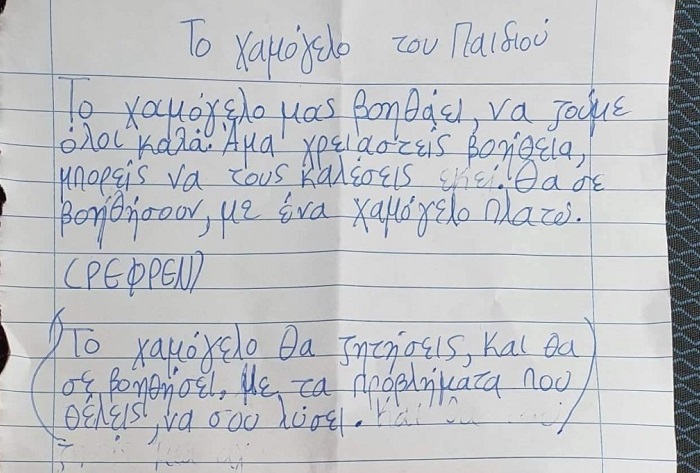 Το χαμόγελο του Παιδιού
Το χαμόγελο μας βοηθάει, να ζούμε
όλοι καλά. Άμα χρειαστείς βοήθεια,
μπορείς να τους καλέσεις εκεί. Θα σε
βοηθήσουν, με ένα χαμόγελο πλατύ.
(ΡΕΦΡΕΝ)
Το χαμόγελο θα ζητήσεις, και θα
σε βοηθήσει. Με τα προβλήματα που
θέλεις, να σου λύσει.